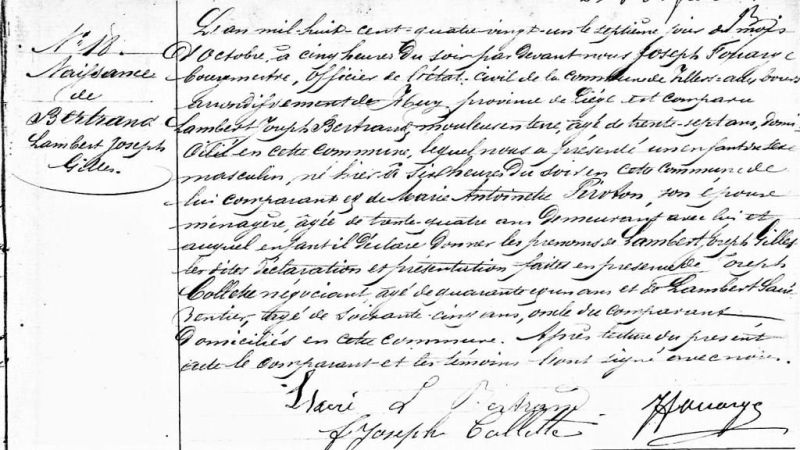 N° 18.
Naissance
de
Bertrand
Lambert Joseph
Gilles.
L'an mil huit-cent-quatre-vingt-un le septième jour du mois
d'Octobre, à cinq heures du soir par devant nous Joseph Fouarge
bourgmestre, Officier de l'état-Civil de la Commune de Villers-aux-tours
arrondissement de Huy, province de Liége est comparu
Lambert Joseph Bertrand mouleur en terre, âgé de trente-sept ans, domi-
cilié en cette commune, lequel nous a présenté un enfant du sexe
masculin, né hier à six heures du soir en cette commune de
lui comparant et de Marie Antoinette Piroton, son épouse
ménagère, âgée de trente-quatre ans demeurant avec lui et
auquel enfant il déclare donner les prénoms de Lambert Joseph Gilles
les dites déclaration et présentation faites en présence de Joseph
Collette négociant, âgé de quarante et un ans et de Lambert
rentier, âgé de soixante-cinq ans, oncle du comparant
domiciliés en cette commune. Après lecture du présent
acte le comparant et les témoins l'ont signé avec nous.
L Bertrand
J Joseph Collette
J Fouarge